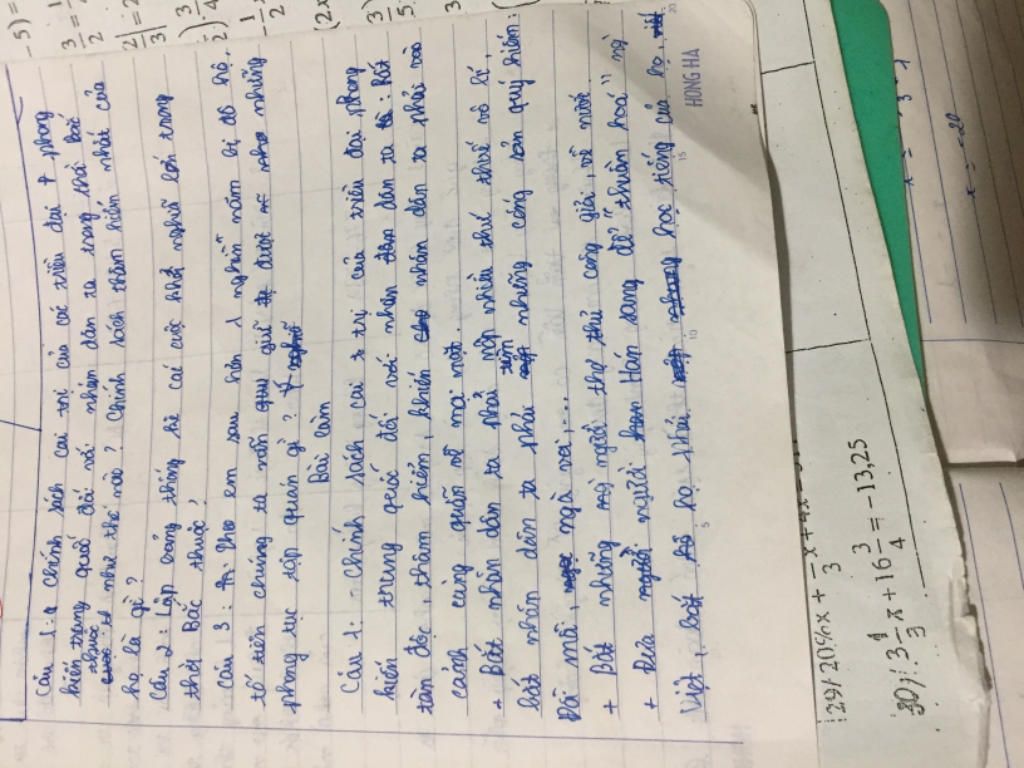 Câu 1: a Chính sách cai trị của các triều đại phong
kiến trung quốc đối với nhân dân ta trong thời Bắc
thuộc như thế nào? Chính sách thâm hiểm nhất của
họ là gì?
Câu 2: Lập bảng thống kê các cuộc khởi nghĩa lớn trong
thời Bắc thuộc?
Câu 3: Theo em sau hơn 1 nghìn năm bị đô hộ.
tổ tiên chúng ta vẫn giữ được những
phong tục tập quán gì?
Bài làm
Câu 1: - Chính sách cai trị của triều đại phong
kiến trung quốc đối với nhân dân ta: Rất
tàn độc, thâm hiểm, khiến nhân dân ta phải vào
cảnh cùng quẫn về mọi mặt.
+ Bắt nhân dân ta phải nộp nhiều thứ thuế vô lí,
bắt nhân dân ta phải tìm những cống sản quý hiếm:
Đồi mồi, ngà voi,...
+ Bắt những người thợ thủ công giỏi, về nước
+ Đưa người Hán sang để "thuần hoá" ng`
Việt, bắt họ phải học tiếng của họ,
HONG HA
5
10
15
20
29) 20%x + 2/3 x +
30) 3 1/3 x + 16 3/4 = -13,25
x = -20